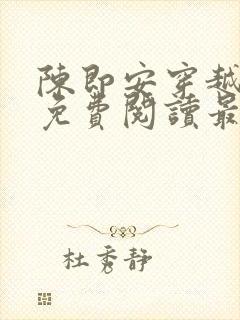 陳即安穿越
免費閱讀最
杜秀靜